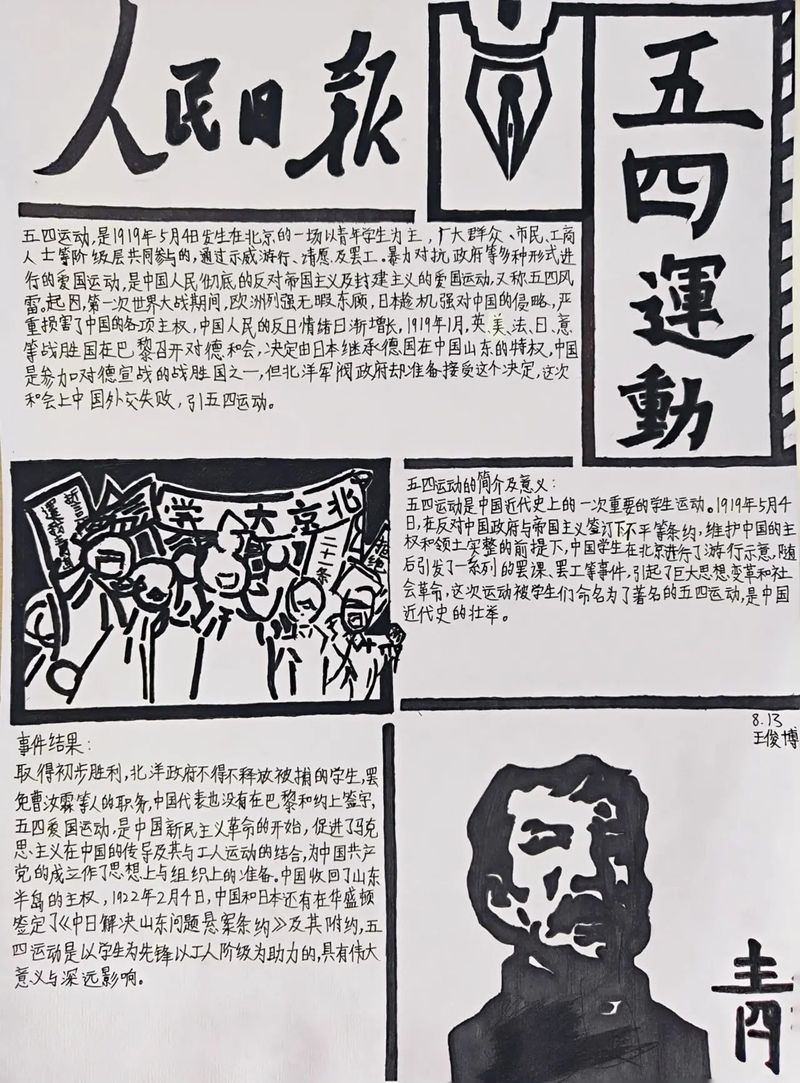 人民日报
五四運動
五四运动,是1919年5月4日发生在北京的一场以青年学生为主,广大群众、市民、工商
人士等阶级层共同参与的,通过示威游行、请愿及罢工。暴力对抗政府等多种形式进
行的爱国运动,是中国人民彻底的反对帝国主义及封建主义的爱国运动,又称五四风
雷。起因,第一次世界大战期间,欧洲列强无暇东顾,日本趁机强对中国的侵略,严
重损害了中国的各项主权,中国人民的反日情绪日渐增长,1919年1月,英、美、法、日、意
等战胜国在巴黎召开对德和会,决定由日本继承德国在中国山东的特权,中国
是参加对德宣战的战胜国之一,但北洋军阀政府却准备接受这个决定,这次
和会上中国外交失败,引五四运动。
誓言
還我青島
北京大学
二十一条
拒绝
五四运动的简介及意义:
五四运动是中国近代史上的一次重要的学生运动。1919年5月4
日,在反对中国政府与帝国主义签订下不平等条约,维护中国的主
权和领土完整的前提下,中国学生在北京进行了游行示意,随
后引发了一系列的罢课、罢工等事件,引起了巨大思想变革和社
会革命,这次运动被学生们命名为了著名的五四运动,是中国
近代史的壮举。
事件结果:
取得初步胜利,北洋政府不得不释放被捕的学生,罢
免曹汝霖等人的职务,中国代表也没有在巴黎和约上签字,
五四爱国运动,是中国新民主义革命的开始,促进了马克
思主义在中国的传导及其与工人运动的结合,为中国共产
党的成立作了思想上与组织上的准备。中国收回了山东
半岛的主权,1922年2月4日,中国和日本还有在华盛顿
签定了《中日解决山东问题悬案条约》及其附约,五
四运动是以学生为先锋以工人阶级为助力的,具有伟大
意义与深远影响。
8.13
王俊博
青